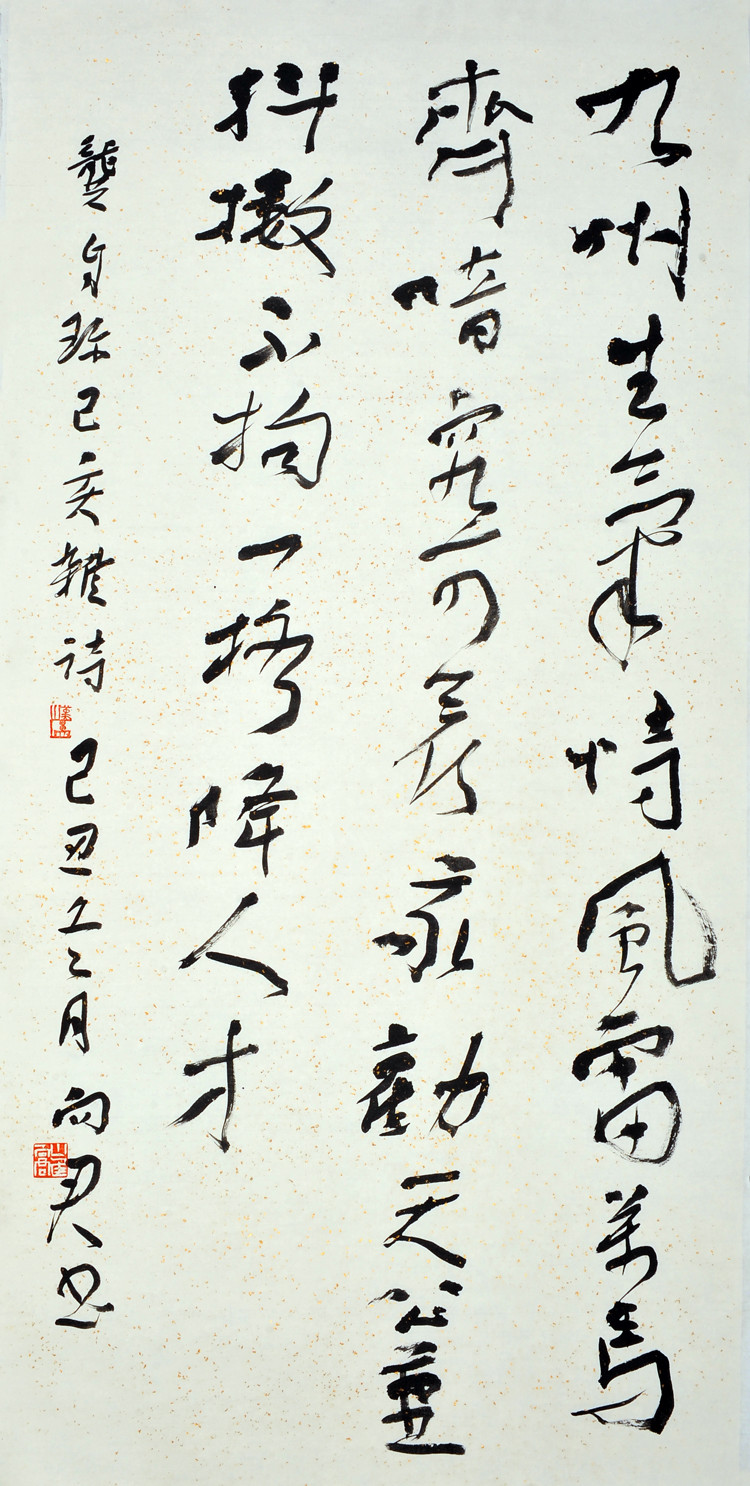 九州生氣恃風雷萬馬
齊喑究可哀我勸天公重
抖擻不拘一格降人才
龔自珍己亥雜詩 己丑五月向書